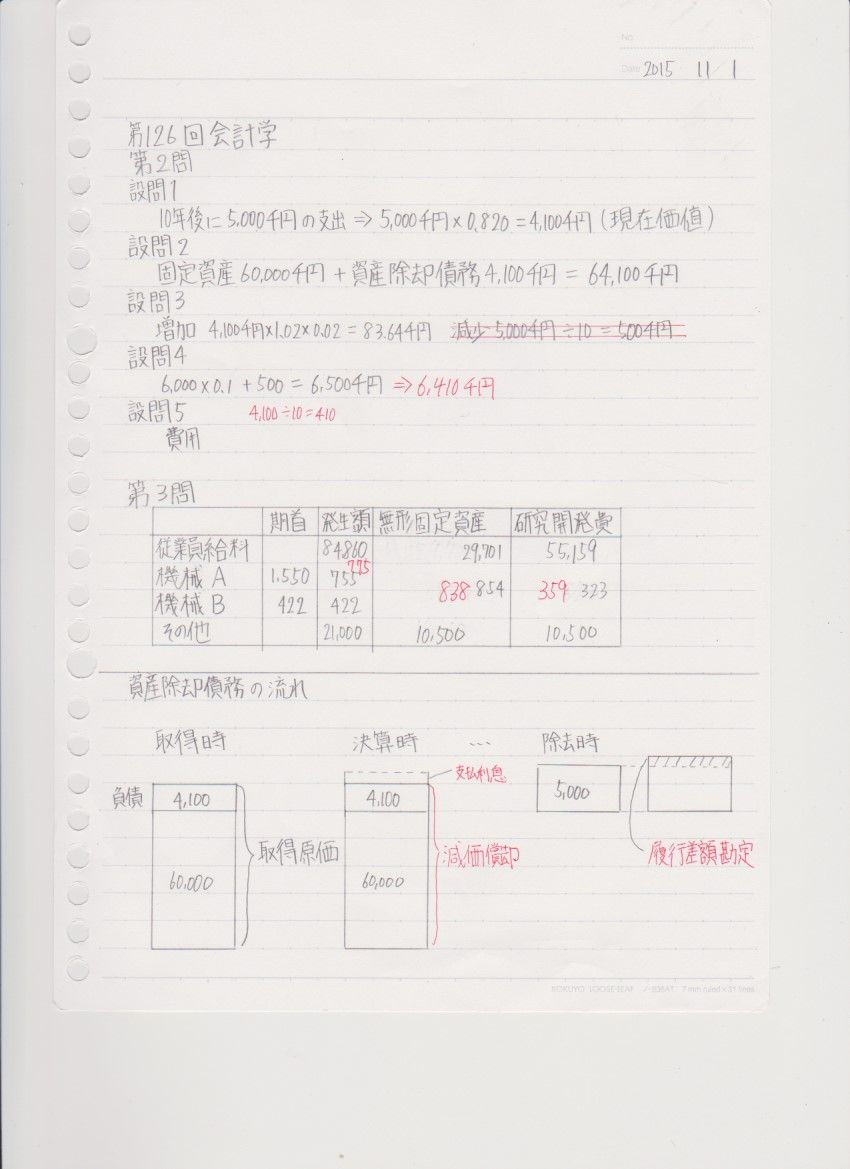 No.
Date 2015 11 1
第126回会計学
第2問
設問1
10年後に5,000千円の支出 ⇒ 5,000千円×0.820=4,100千円(現在価値)
設問2
固定資産60,000千円 + 資産除却債務4,100千円 = 64,100千円
設問3
増加 4,100千円×1.02×0.02=83.644千円 減少 5,000千円÷10=500千円
設問4
6,000×0.1+500=6,500千円 ⇒6,410千円
設問5 4,100÷10=410
費用
第3問
期首 発生額 無形固定資産 研究開発費
従業員給料 84860 29,701 55,159
775
機械A 1,550 755
838 854 359 323
機械B 422 422
その他 21,000 10,500 10,500
資産除却債務の流れ
取得時 決算時 … 除去時
支払利息
負債 4,100 4,100 5,000
取得原価 減価償却 履行差額勘定
60,000 60,000
KOKUYO LOOSE-LEAF ノ-836AT 7mm ruled×31 lines